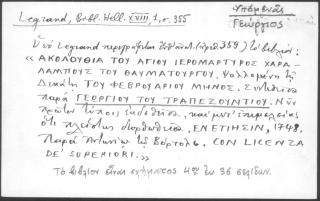 Legrand, Bibl. Hell. XVIII, 1, σ. 355
Ὑπομενᾶς
Γεώργιος
Ὑπὸ Legrand περιγράφεται 359) τὸ βιβλίον:
« ΑΚΟΛΟΥΘΙΑ ΤΟΥ ΑΓΙΟΥ ΙΕΡΟΜΑΡΤΥΡΟΣ ΧΑΡΑ-
ΛΑΜΠΟΥΣ ΤΟΥ ΘΑΥΜΑΤΟΥΡΓΟΥ. Ψαλλομένη τῇ
Δεκάτῃ ΤΟΥ ΦΕΒΡΟΥΑΡΙΟΥ ΜΗΝΟΣ. Συντεθεῖσα
παρὰ ΓΕΩΡΓΙΟΥ ΤΟΥ ΤΡΑΠΕΖΟΥΝΤΙΟΥ. Νῦν
πρῶτον τύποις ἐκδοθεῖσα, καὶ μετ' ἐπιμελείας
ὅτι πλείστης διορθωθεῖσα. ΕΝΕΤΙΗΣΙΝ, 1748.
Παρὰ Ἀντωνίῳ τῷ Βόρτολι. CON LICENZA
DE' SUPERIORI.»
Τὸ βιβλίον εἶναι σχήματος 4ου ἐκ 36 σελίδων.